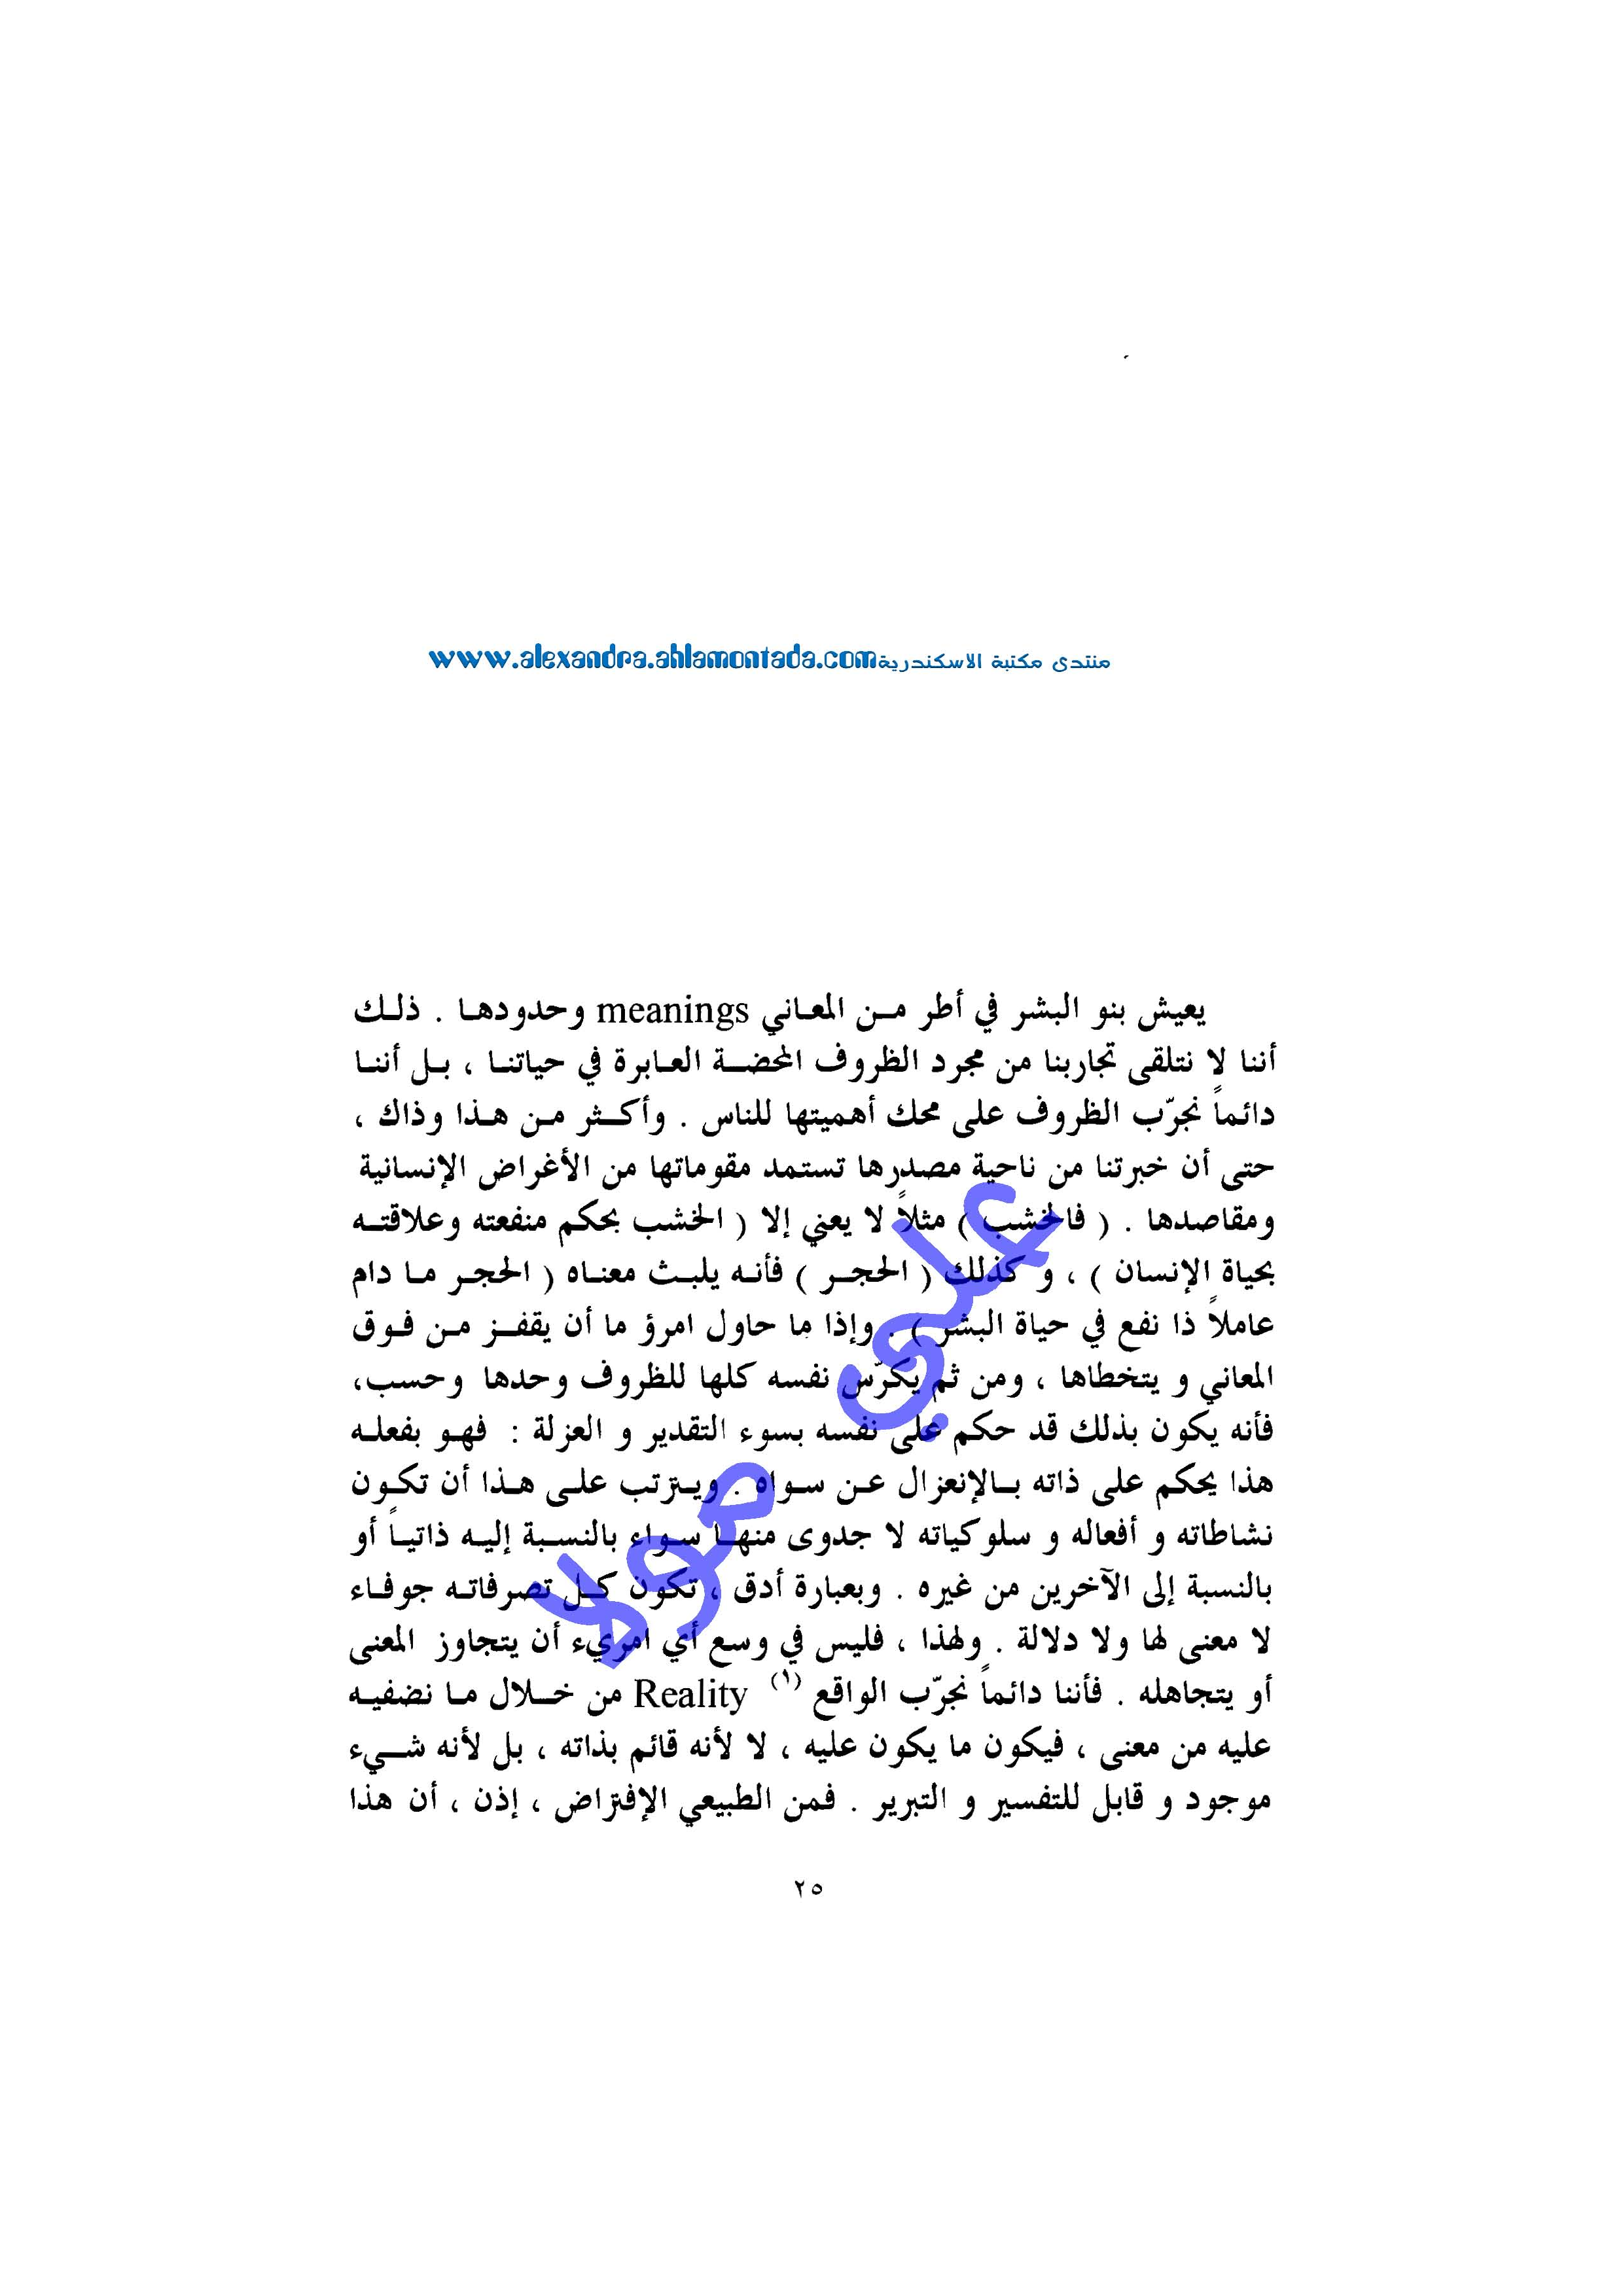 منتدى مكتبة الاسكندرية www.alexandra.ahlamontada.com
يعيش بنو البشر في أطر من المعاني meanings وحدودها . ذلك
أننا لا نتلقى تجاربنا من مجرد الظروف المحضة العابرة في حياتنا ، بل أننا
دائماً نجرّب الظروف على محك أهميتها للناس . وأكثر من هذا وذاك ،
حتى أن خبرتنا من ناحية مصدرها تستمد مقوماتها من الأغراض الإنسانية
ومقاصدها . ( فالخشب ) مثلاً لا يعني إلا ( الخشب بحكم منفعته وعلاقته
بحياة الإنسان ) ، و كذلك ( الحجر ) فأنه يلبث معناه ( الحجر ما دام
عاملاً ذا نفع في حياة البشر ) . وإذا ما حاول امرؤ ما أن يقفز من فوق
المعاني و يتخطاها ، ومن ثم يكرّس نفسه كلها للظروف وحدها وحسب،
فأنه يكون بذلك قد حكم على نفسه بسوء التقدير و العزلة : فهو بفعله
هذا يحكم على ذاته بالإنعزال عن سواه . ويترتب على هذا أن تكون
نشاطاته و أفعاله و سلوكياته لا جدوى منها سواء بالنسبة إليه ذاتياً أو
بالنسبة إلى الآخرين من غيره . وبعبارة أدق ، تكون كل تصرفاته جوفاء
لا معنى لها ولا دلالة . ولهذا ، فليس في وسع أي امريء أن يتجاوز المعنى
أو يتجاهله . فأننا دائماً نجرّب الواقع (١) Reality من خلال ما نضفيه
عليه من معنى ، فيكون ما يكون عليه ، لا لأنه قائم بذاته ، بل لأنه شيء
موجود و قابل للتفسير و التبرير . فمن الطبيعي الإفتراض ، إذن ، أن هذا
٢٥
علي مولا